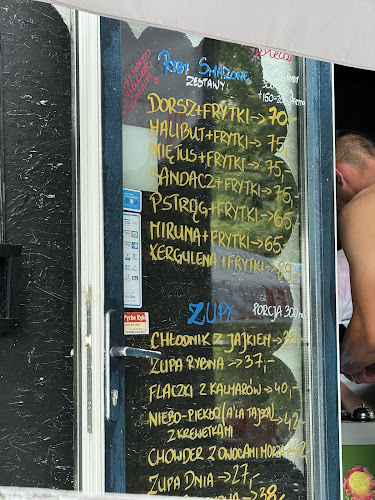 RYBY SMAŻONE
ZESTAWY
150-200
DORSZ+FRYTKI→70,-
HALIBUT+FRYTKI→75,-
MIĘTUS+FRYTKI→75,-
SANDACZ+FRYTKI→75,-
PSTRĄG+FRYTKI→65,-
MIRUNA+FRYTKI→65,-
KERGULENA+FRYTKI→89,-
ZUPY PORCJA 300 ml
CHŁODNIK Z JAJKIEM→
ZUPA RYBNA→37,-
FLACZKI Z KALMARÓW→40,-
NIEBO-PIEKŁO (A'LA TAJSKA) 42
Z KREWETKAMI
CHOWDER Z OWOCAMI MORZA 42
ZUPA DNIA→27,-
38,-